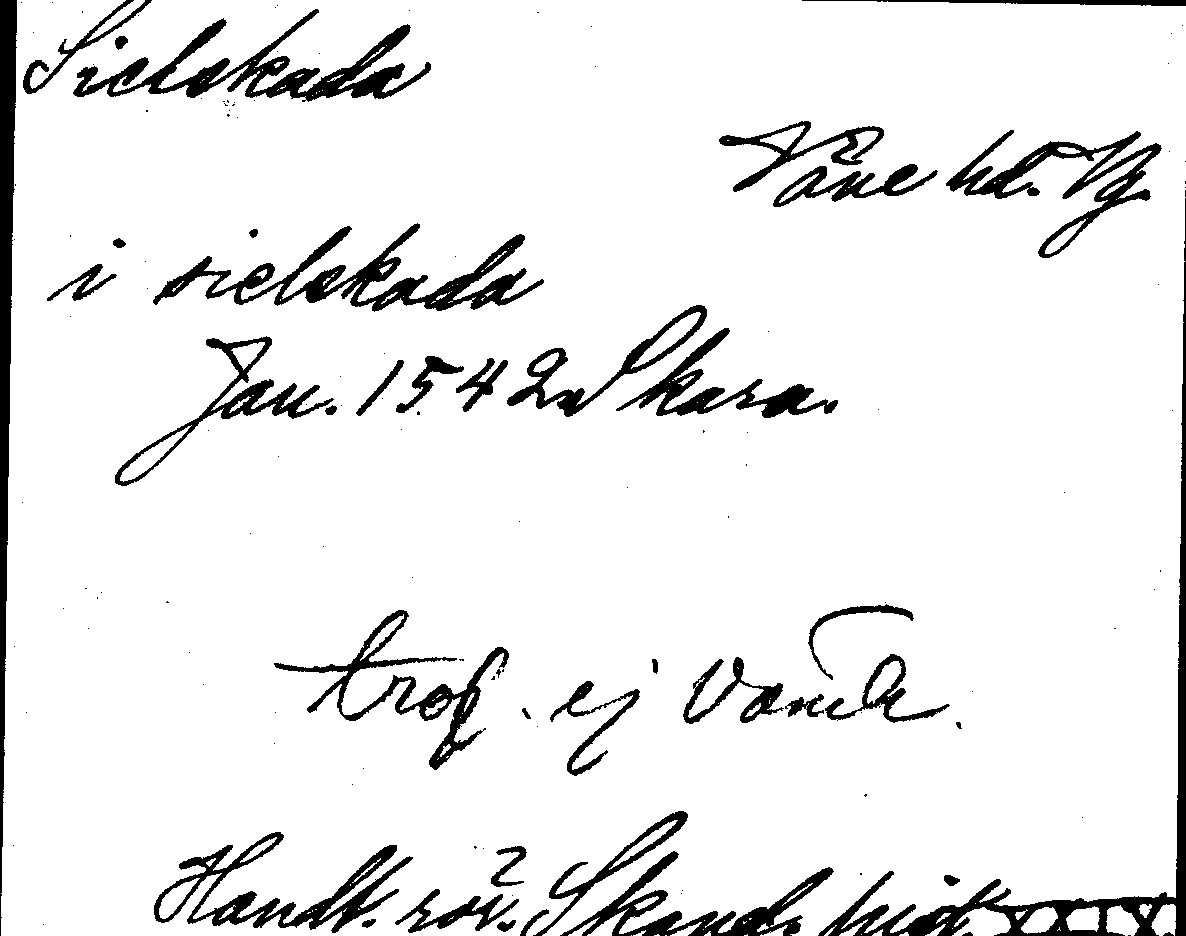 Sielskada
Våne hd. Vg.
i sielskada
Jan. 1542 Skara.
trol. ej Väne h.
Handl. rör. Skand. hist. XXIX.